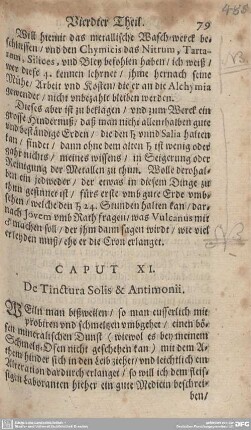 Vierdter Theil. 79
Will hiemit das metallische Wasch-werck be-
schliessen / vnd den Chymicis das Nitrum, Tarta-
rum, Silices, vnd Bley befohlen haben / ich weiß /
wer diese 4. kennen lehrnet / ihme hernach seine
Mühe / Arbeit vnd Kosten / die er an die Alchymia
gewendet / nicht vnbezahlt bleiben werden.
Dieses aber ist zu beklagen / vnd zum Werck ein
grosse Hindernuß / daß man nicht allenthalben gute
vnd beständige Erden / die den ♄ vnnd Salia halten
kan / findet / dann ohne dem alten ♄ ist wenig oder
gahr nichts / meines wissens / in Seigerung oder
Reinigung der Metallen zu thun. Wolle derohal-
ben ein jedweder / der etwas in diesem Dinge zu
thun gesinnet ist / fürs erste vmb gute Erde vmb-
sehen / welche den ♄ 24. Stunden halten kan / dar-
nach Jovem vmb Rath fragen / was Vulcanus mit
machen soll / der jhm dann sagen wirdt / wie viel
erleyden muß / ehe er die Cron erlanget.
CAPUT XI.
De Tinctura Solis & Antimonii.
WEiln man bißweilen / so man eusserlich mit
probiren vnd schmeltzen vmbgehet / einen bö-
sen mineralischen Dunst (wiewol es bey meinem
Schmeltz-Ofen nicht geschehen kan) mit dem A-
them hinder sich in den Leib ziehet / vnd leichtlich ein
Alteration dardurch erlanget / so will ich dem fleis-
sigen Laboranten hieher ein gute Medicin beschrei-
ben /